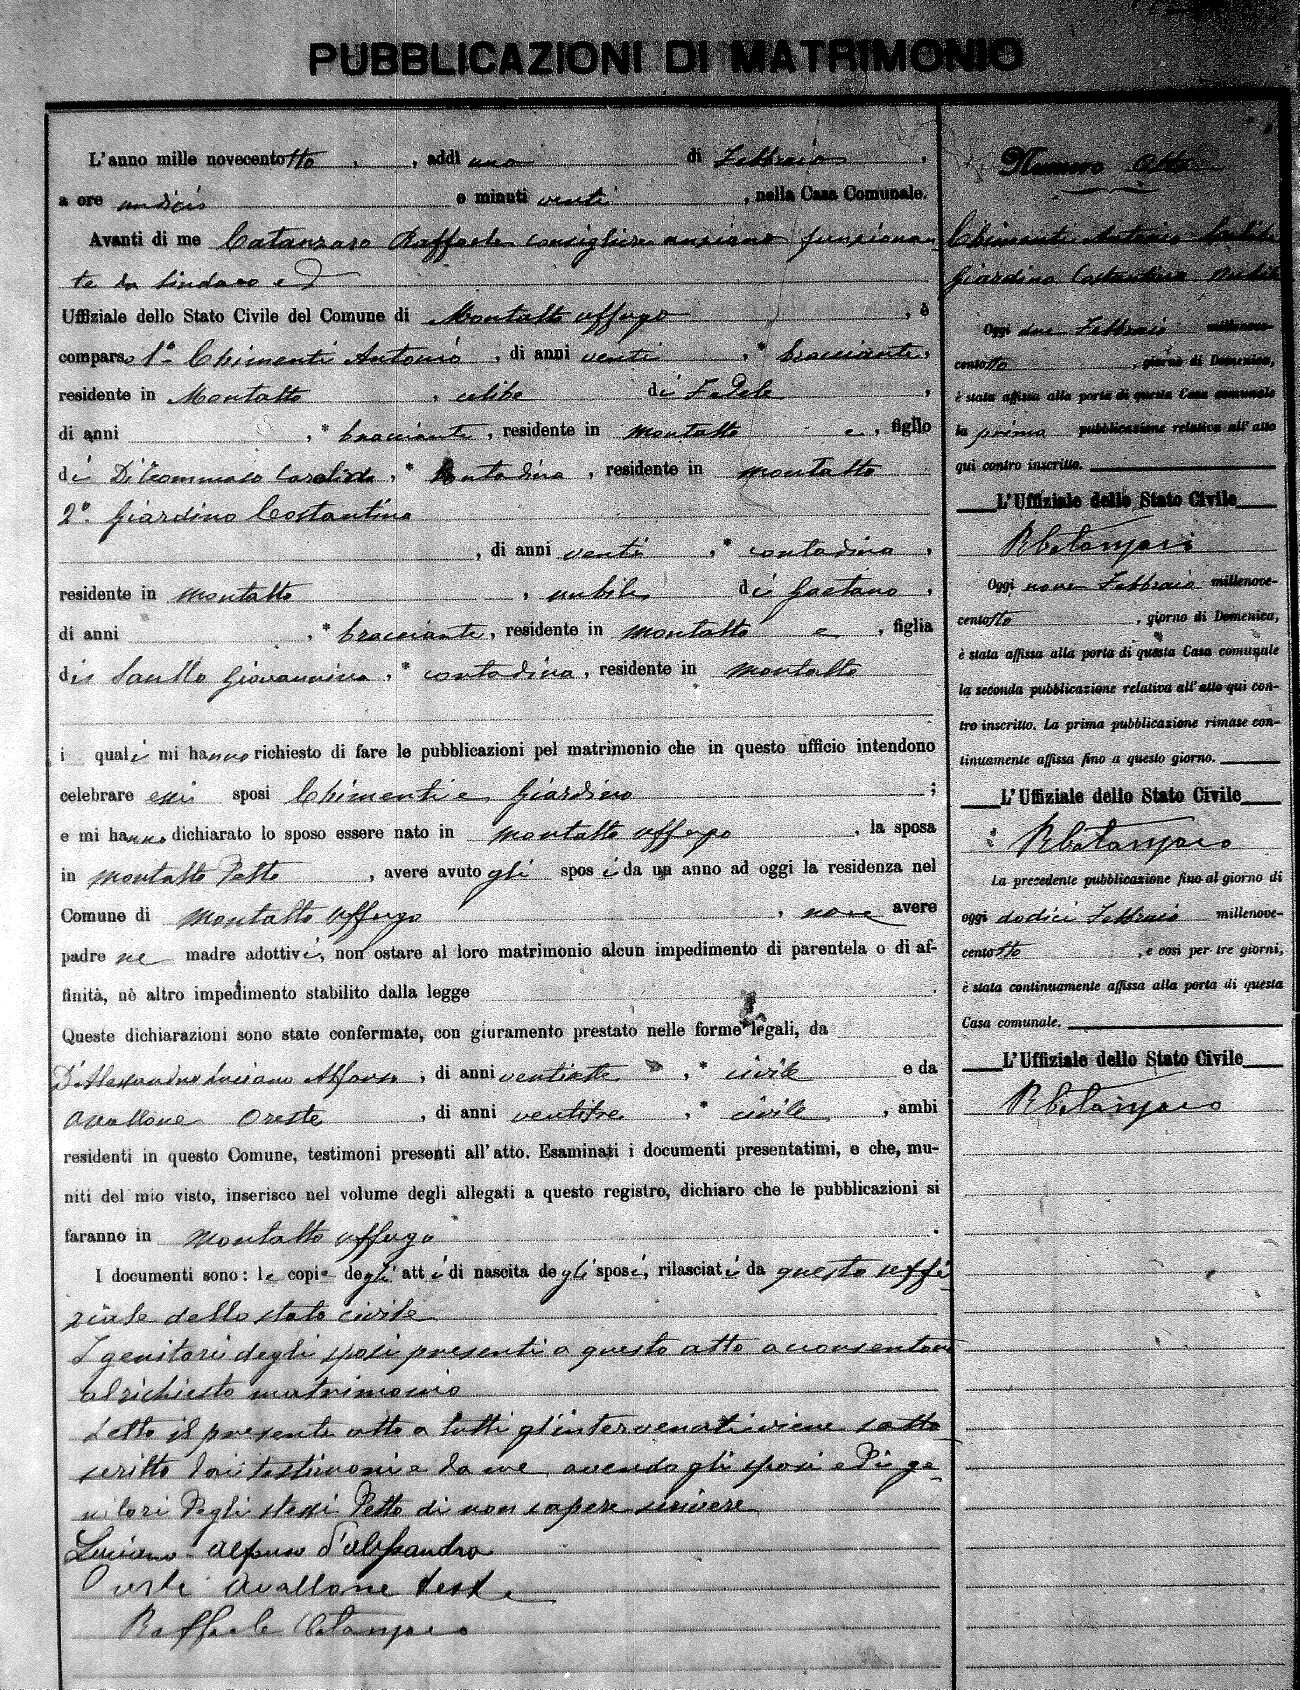 PUBBLICAZIONI DI MATRIMONIO
L'anno mille novecentotto, addì uno di Febbraio,
a ore undici e minuti venti, nella Casa Comunale.
Avanti di me Catanzaro Raffaele consigliere anziano funzionan
te da sindaco ed
Uffiziale dello Stato Civile del Comune di Montalto uffugo, è
comparso 1º Chimenti Antonio, di anni venti, * bracciante,
residente in Montalto, celibe di Fedele,
di anni , * bracciante, residente in Montalto e, figlio
di Di Tommaso Carolina, * contadina, residente in montalto
2º. Giardino Costantina
, di anni venti, * contadina,
residente in montalto, nubile di Gaetano,
di anni , * bracciante, residente in montalto e, figlia
di Giovannina, * contadina, residente in montalto
i quali mi hanno richiesto di fare le pubblicazioni pel matrimonio che in questo ufficio intendono
celebrare essi sposi Chimenti e Giardino;
e mi hanno dichiarato lo sposo essere nato in montalto uffugo, la sposa
in montalto detto, avere avuto gli sposi da un anno ad oggi la residenza nel
Comune di Montalto Uffugo, non avere
padre ne madre adottivi, non ostare al loro matrimonio alcun impedimento di parentela o di af-
finità, nè altro impedimento stabilito dalla legge .
Queste dichiarazioni sono state confermate, con giuramento prestato nelle forme legali, da
D'Alessandro Luciano Alfonso, di anni ventisette, * civile e da
Avallone Oreste, di anni ventitre, * civile, ambi
residenti in questo Comune, testimoni presenti all'atto. Esaminati i documenti presentatimi, e che, mu-
niti del mio visto, inserisco nel volume degli allegati a questo registro, dichiaro che le pubblicazioni si
faranno in Montalto uffugo.
I documenti sono: le copie degli atti di nascita degli sposi, rilasciati da questo uffi
ziale dello stato civile
I genitori degli sposi presenti a questo atto acconsentono
al richiesto matrimonio
Letto il presente atto a tutti gl'intervenuti viene sotto
scritto dai testimoni e da me avendo gli sposi e i ge-
nitori degli stessi detto di non sapere scrivere
Luciano Alfonso d'Alessandro
Oreste Avallone teste
Raffaele Catanzaro
Numero Otto
Chimenti Antonio celibe
Giardino Costantina nubile
Oggi due Febbraio millenove-
centotto, giorno di Domenica,
è stata affissa alla porta di questa Casa comunale
la prima pubblicazione relativa all'atto
qui contro inscritto.
L'Uffiziale dello Stato Civile
RCatanzaro
Oggi nove Febbraio millenove-
centotto, giorno di Domenica,
è stata affissa alla porta di questa Casa comunale
la seconda pubblicazione relativa all'atto qui con-
tro inscritto. La prima pubblicazione rimase con-
tinuamente affissa fino a questo giorno.
L'Uffiziale dello Stato Civile
RCatanzaro
La precedente pubblicazione fino al giorno di
oggi dodici Febbraio millenove-
centotto, e così per tre giorni,
è stata continuamente affissa alla porta di questa
Casa comunale.
L'Uffiziale dello Stato Civile
RCatanzaro